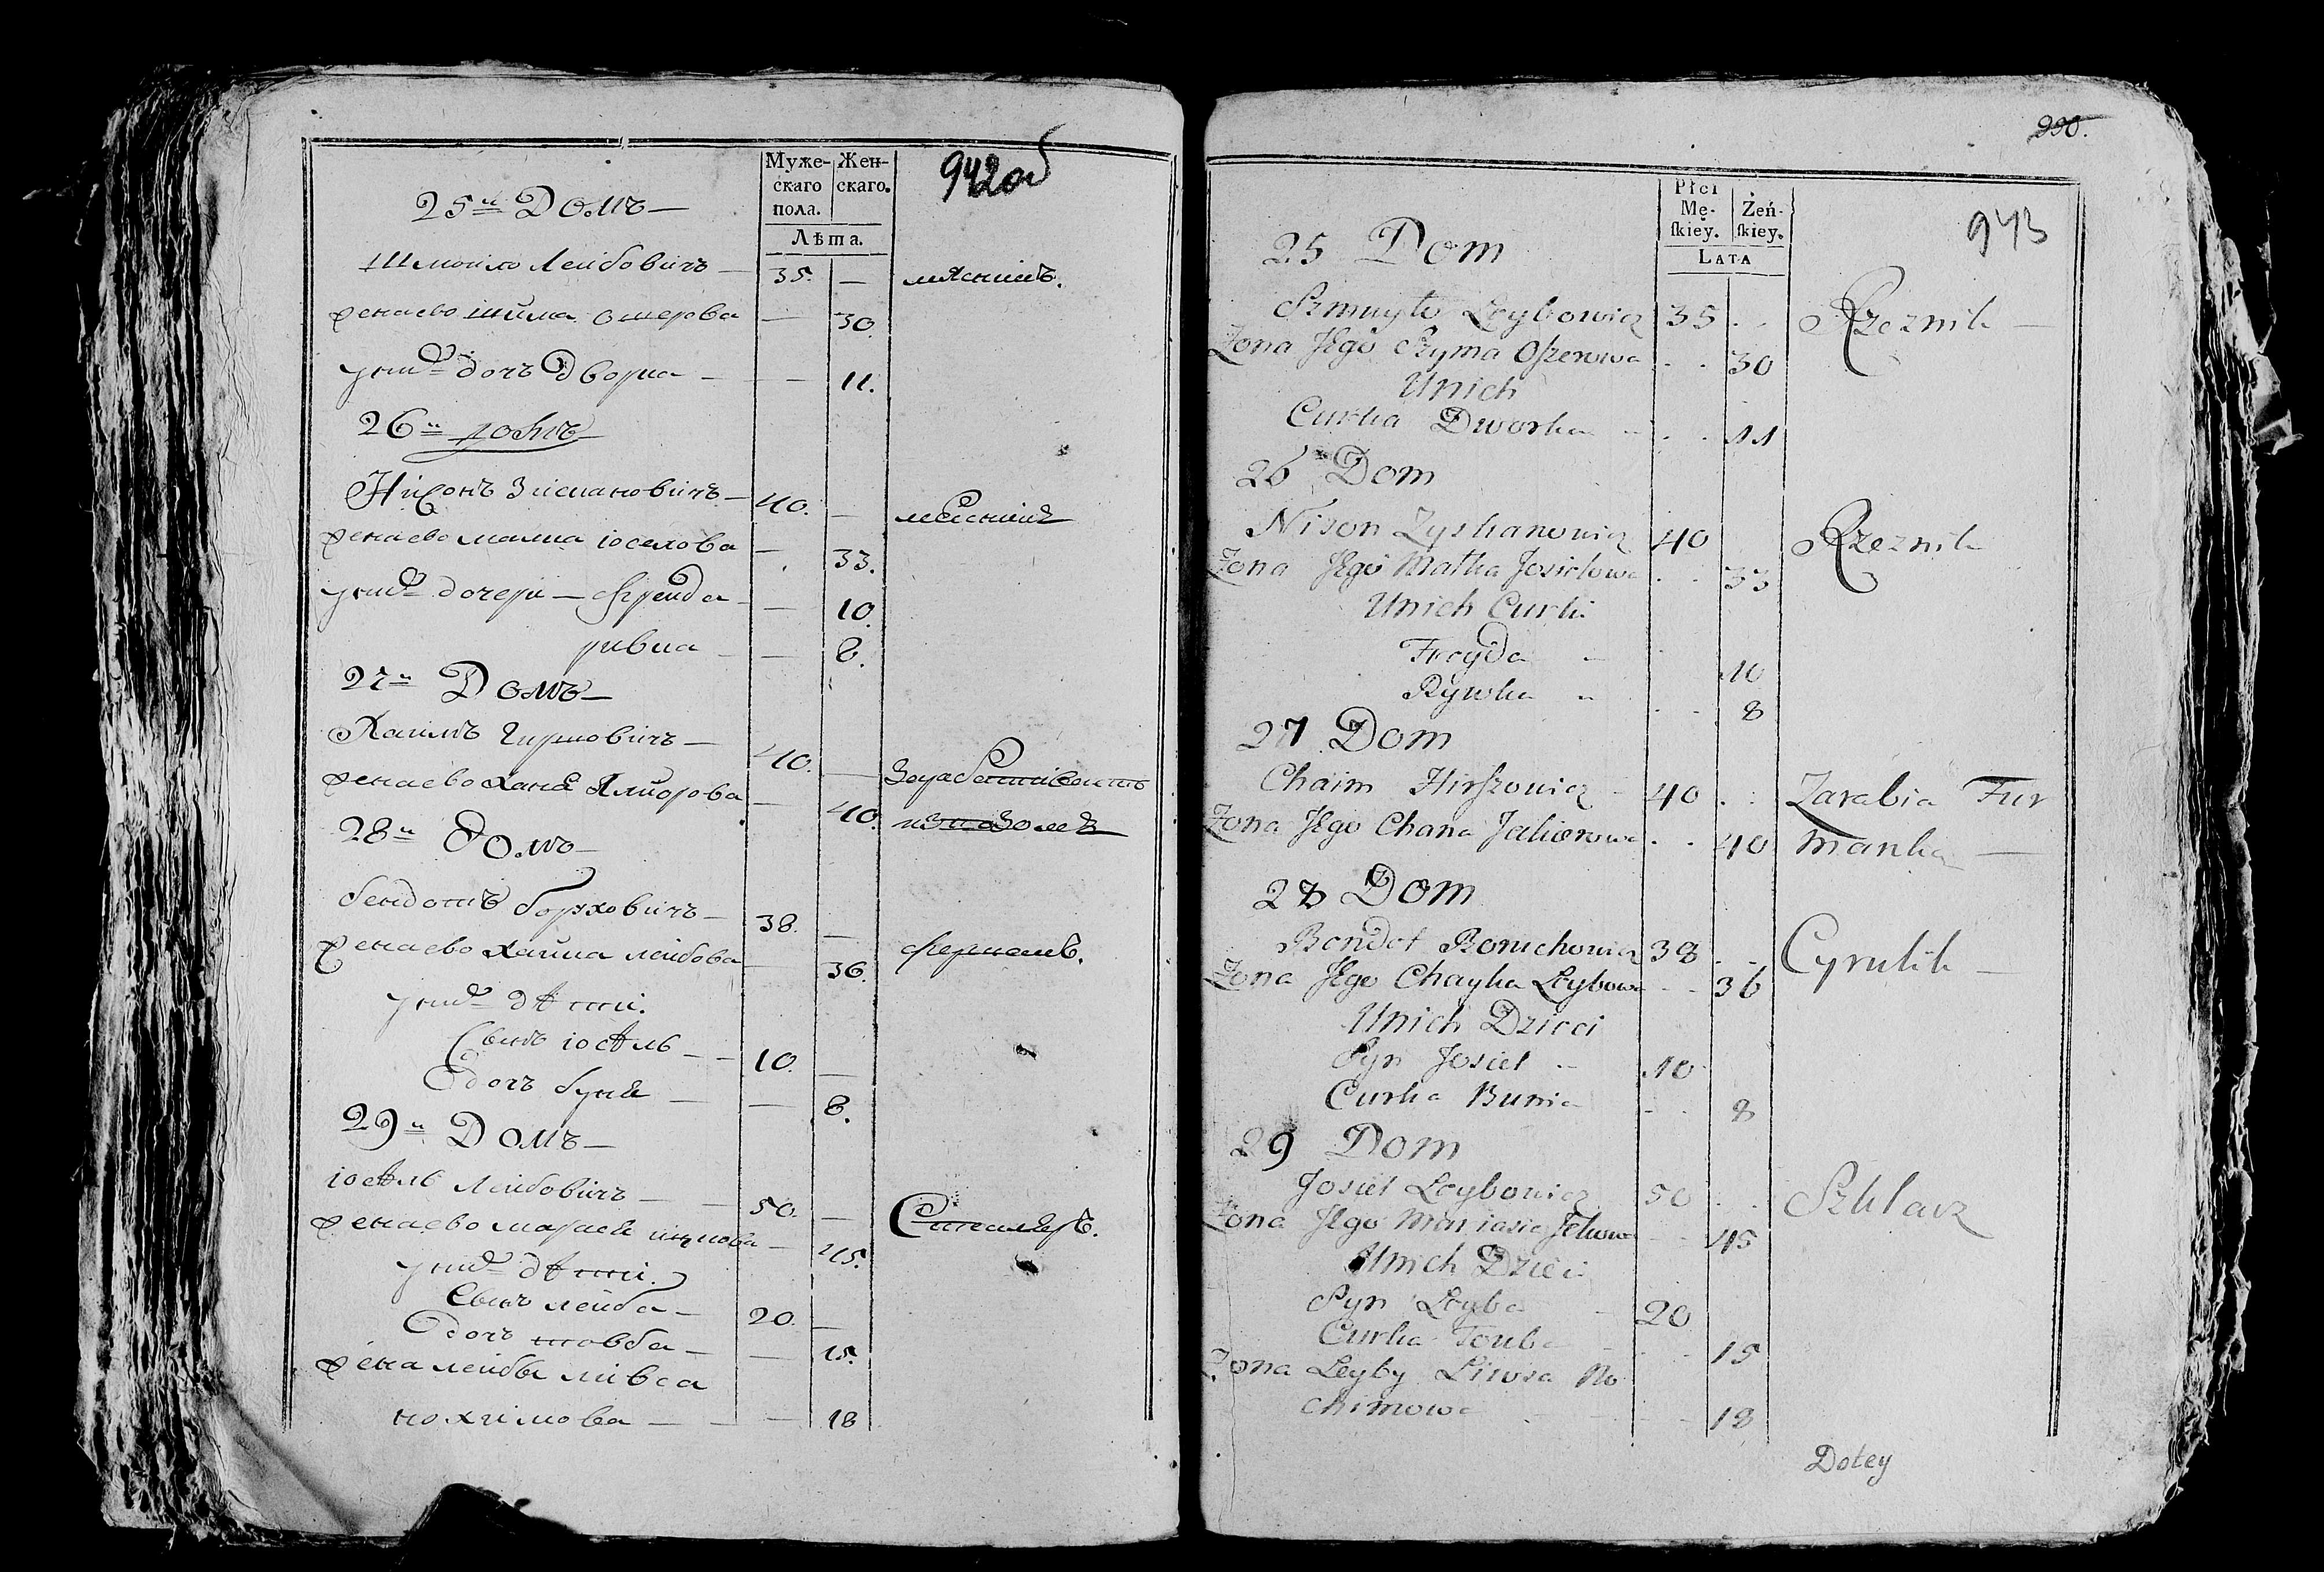 Муже-
скаго
пола.
Жен-
скаго.
Лѣта.
942об
25й Домъ —
Шмойло Лейбовичъ — 35. — мясникъ.
жена ево шима ошерова — 30.
у нихъ дочъ Дворка — — 11.
26й домъ
Нисонъ Зискановичъ — 40. — мясникъ
жена ево малка юселова — 33.
у нихъ дочери — Фрейда — — 10.
ривка — — 8.
27й Домъ —
Хаимъ Гиршовичъ — 40. —
жена ево хана — 40.
извозомъ
28й Домъ —
бендетъ борховичъ — 38. —
жена ево хайка лейбова — 36.
у нихъ дѣти.
Сынъ юсѣль — — 10. —
дочъ буня — — 8.
29й Домъ —
юсѣль Лейбовичъ — — 50. —
жена ево — 45.
у нихъ дѣти.
Сынъ лейба — 20. —
дочъ товба — — 15.
жена лейбы ливса
нохимова — — — 18
990.
943
Płci
Mę-
ſkiey.
Żeń-
ſkiey.
LATA
25 Dom
Szmuyło Leybowicz 35 . . Rzeznik —
Zona Jego Szyma Oszerowa . . 30
Unich
Curka Dworka . . 11
26 Dom
Nison Zyskanowicz 40 Rzeznik
Zona Jego Małka Josielowa . . 33
Unich Curki
Freyda 10
Rywka . . 8
27 Dom
Chaim Hirszowicz 40 . . Zarabia Fur
Zona Jego Chana . . 40 manką —
28 Dom
Bendet Boruchowicz 38 . . Cyrulik —
Zona Jego Chayka Leybowa - - 36
Unich Dzieci
Syn Josiel 10
Curka Bunia - . 8
29 Dom
Josiel Leybowicz 50 . . Szklarz
Zona Jego Mariasia - - 45
Unich Dzieci
Syn Leyba 20
Curka Touba 15
Zona Leyby Liwsa No
chimowa 18
Doley